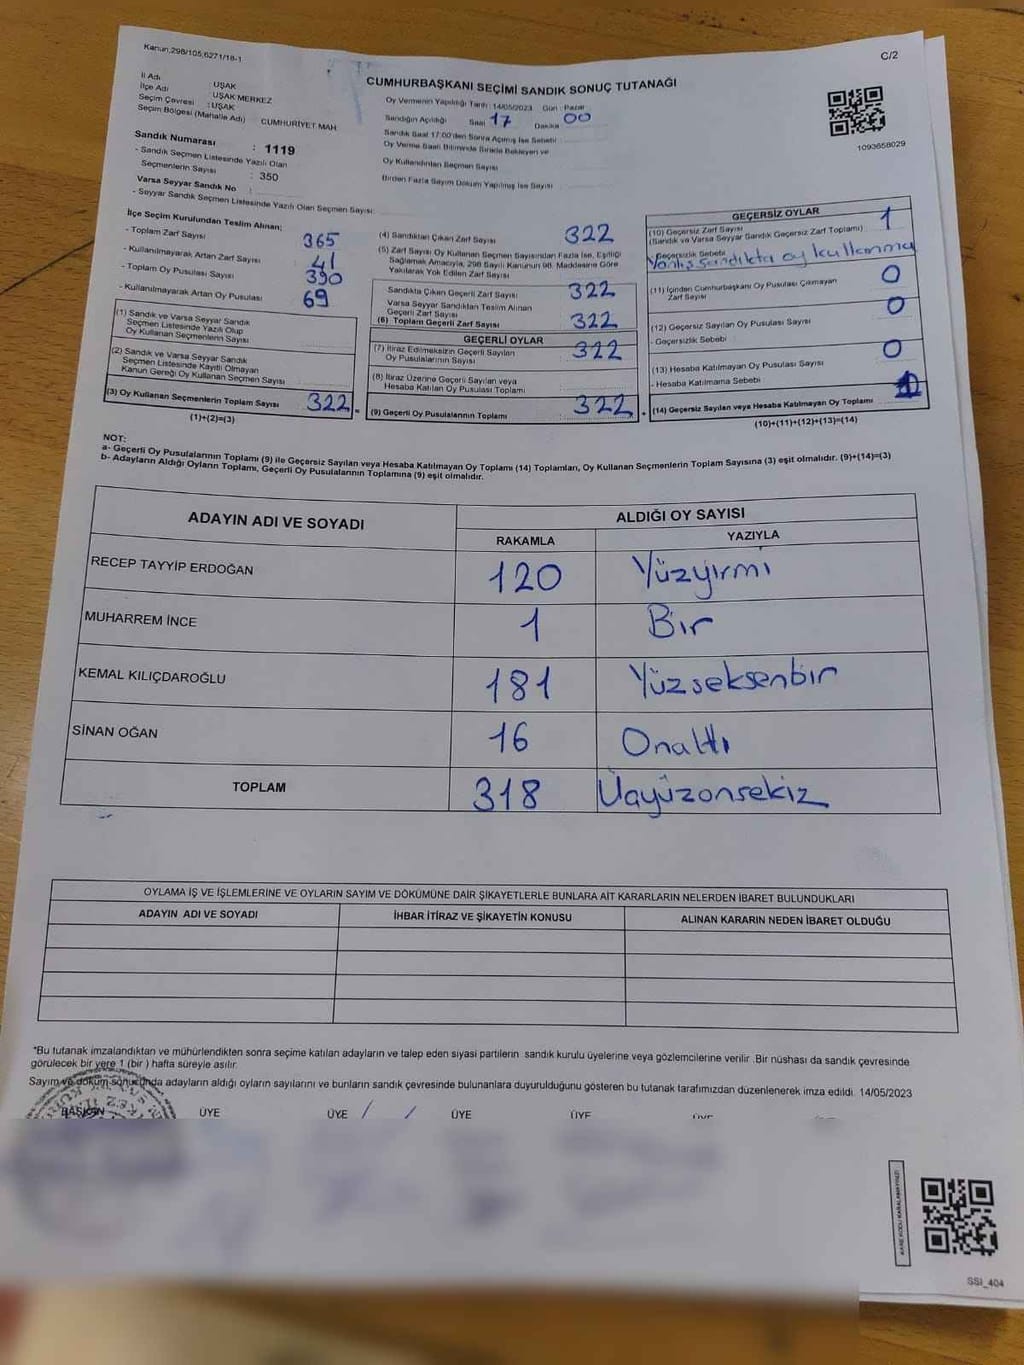 Kanun,298/105,6271/18-1
C/2
CUMHURBAŞKANI SEÇİMİ SANDIK SONUÇ TUTANAĞI
İl Adı UŞAK
İlçe Adı UŞAK MERKEZ
Seçim Çevresi : UŞAK
Seçim Bölgesi (Mahalle Adı) CUMHURİYET MAH.
Sandık Numarası : 1119
- Sandık Seçmen Listesinde Yazılı Olan
Seçmenlerin Sayısı : 350
Varsa Seyyar Sandık No
- Seyyar Sandık Seçmen Listesinde Yazılı Olan Seçmen Sayısı:
Oy Vermenin Yapıldığı Tarih : 14/05/2023 Gün : Pazar
Sandığın Açıldığı Saat 17 Dakika 00
Sandık Saat 17:00'den Sonra Açılmış İse Sebebi
Oy Verme Saati Bitiminde Sırada Bekleyen ve
Oy Kullandırılan Seçmen Sayısı
Birden Fazla Sayım Döküm Yapılmış İse Sayısı
1093658029
İlçe Seçim Kurulundan Teslim Alınan;
- Toplam Zarf Sayısı 365
- Kullanılmayarak Artan Zarf Sayısı 41
- Toplam Oy Pusulası Sayısı 390
- Kullanılmayarak Artan Oy Pusulası 69
(1) Sandık ve Varsa Seyyar Sandık
Seçmen Listesinde Yazılı Olup
Oy Kullanan Seçmenlerin Sayısı
(2) Sandık ve Varsa Seyyar Sandık
Seçmen Listesinde Kayıtlı Olmayan
Kanun Gereği Oy Kullanan Seçmen Sayısı
(3) Oy Kullanan Seçmenlerin Toplam Sayısı 322
(1)+(2)=(3)
(4) Sandıktan Çıkan Zarf Sayısı 322
(5) Zarf Sayısı Oy Kullanan Seçmen Sayısından Fazla İse, Eşitliği
Sağlamak Amacıyla, 298 Sayılı Kanunun 98. Maddesine Göre
Yakılarak Yok Edilen Zarf Sayısı
Sandıkta Çıkan Geçerli Zarf Sayısı 322
Varsa Seyyar Sandıktan Teslim Alınan
Geçerli Zarf Sayısı
(6) Toplam Geçerli Zarf Sayısı 322
GEÇERLİ OYLAR
(7) İtiraz Edilmeksizin Geçerli Sayılan
Oy Pusulalarının Sayısı 322
(8) İtiraz Üzerine Geçerli Sayılan veya
Hesaba Katılan Oy Pusulası Toplamı
(9) Geçerli Oy Pusulalarının Toplamı 322
GEÇERSİZ OYLAR
(10) Geçersiz Zarf Sayısı 1
(Sandık ve Varsa Seyyar Sandık Geçersiz Zarf Toplamı)
- Geçersizlik Sebebi
Yanlış sandıkta oy kullanma
(11) İçinden Cumhurbaşkanı Oy Pusulası Çıkmayan
Zarf Sayısı 0
(12) Geçersiz Sayılan Oy Pusulası Sayısı 0
- Geçersizlik Sebebi
(13) Hesaba Katılmayan Oy Pusulası Sayısı 0
- Hesaba Katılmama Sebebi
(14) Geçersiz Sayılan veya Hesaba Katılmayan Oy Toplamı
(10)+(11)+(12)+(13)=(14)
NOT:
a- Geçerli Oy Pusulalarının Toplamı (9) ile Geçersiz Sayılan veya Hesaba Katılmayan Oy Toplamı (14) Toplamları, Oy Kullanan Seçmenlerin Toplam Sayısına (3) eşit olmalıdır. (9)+(14)=(3)
b- Adayların Aldığı Oyların Toplamı, Geçerli Oy Pusulalarının Toplamına (9) eşit olmalıdır.
ADAYIN ADI VE SOYADI
ALDIĞI OY SAYISI
RAKAMLA YAZIYLA
RECEP TAYYİP ERDOĞAN 120 Yüzyirmi
MUHARREM İNCE 1 Bir
KEMAL KILIÇDAROĞLU 181 Yüzseksenbir
SİNAN OĞAN 16 Onaltı
TOPLAM 318 Üçyüzonsekiz
OYLAMA İŞ VE İŞLEMLERİNE VE OYLARIN SAYIM VE DÖKÜMÜNE DAİR ŞİKAYETLERLE BUNLARA AİT KARARLARIN NELERDEN İBARET BULUNDUKLARI
ADAYIN ADI VE SOYADI İHBAR İTİRAZ VE ŞİKAYETİN KONUSU ALINAN KARARIN NEDEN İBARET OLDUĞU
*Bu tutanak imzalandıktan ve mühürlendikten sonra seçime katılan adayların ve talep eden siyasi partilerin sandık kurulu üyelerine veya gözlemcilerine verilir .Bir nüshası da sandık çevresinde
görülecek bir yere 1 (bir ) hafta süreyle asılır.
Sayım ve döküm sonucunda adayların aldığı oyların sayılarını ve bunların sandık çevresinde bulunanlara duyurulduğunu gösteren bu tutanak tarafımızdan düzenlenerek imza edildi. 14/05/2023
BAŞKAN ÜYE ÜYE ÜYE ÜYE ÜYE
KARE KODU KARALAMAYINIZ!
SSI_404